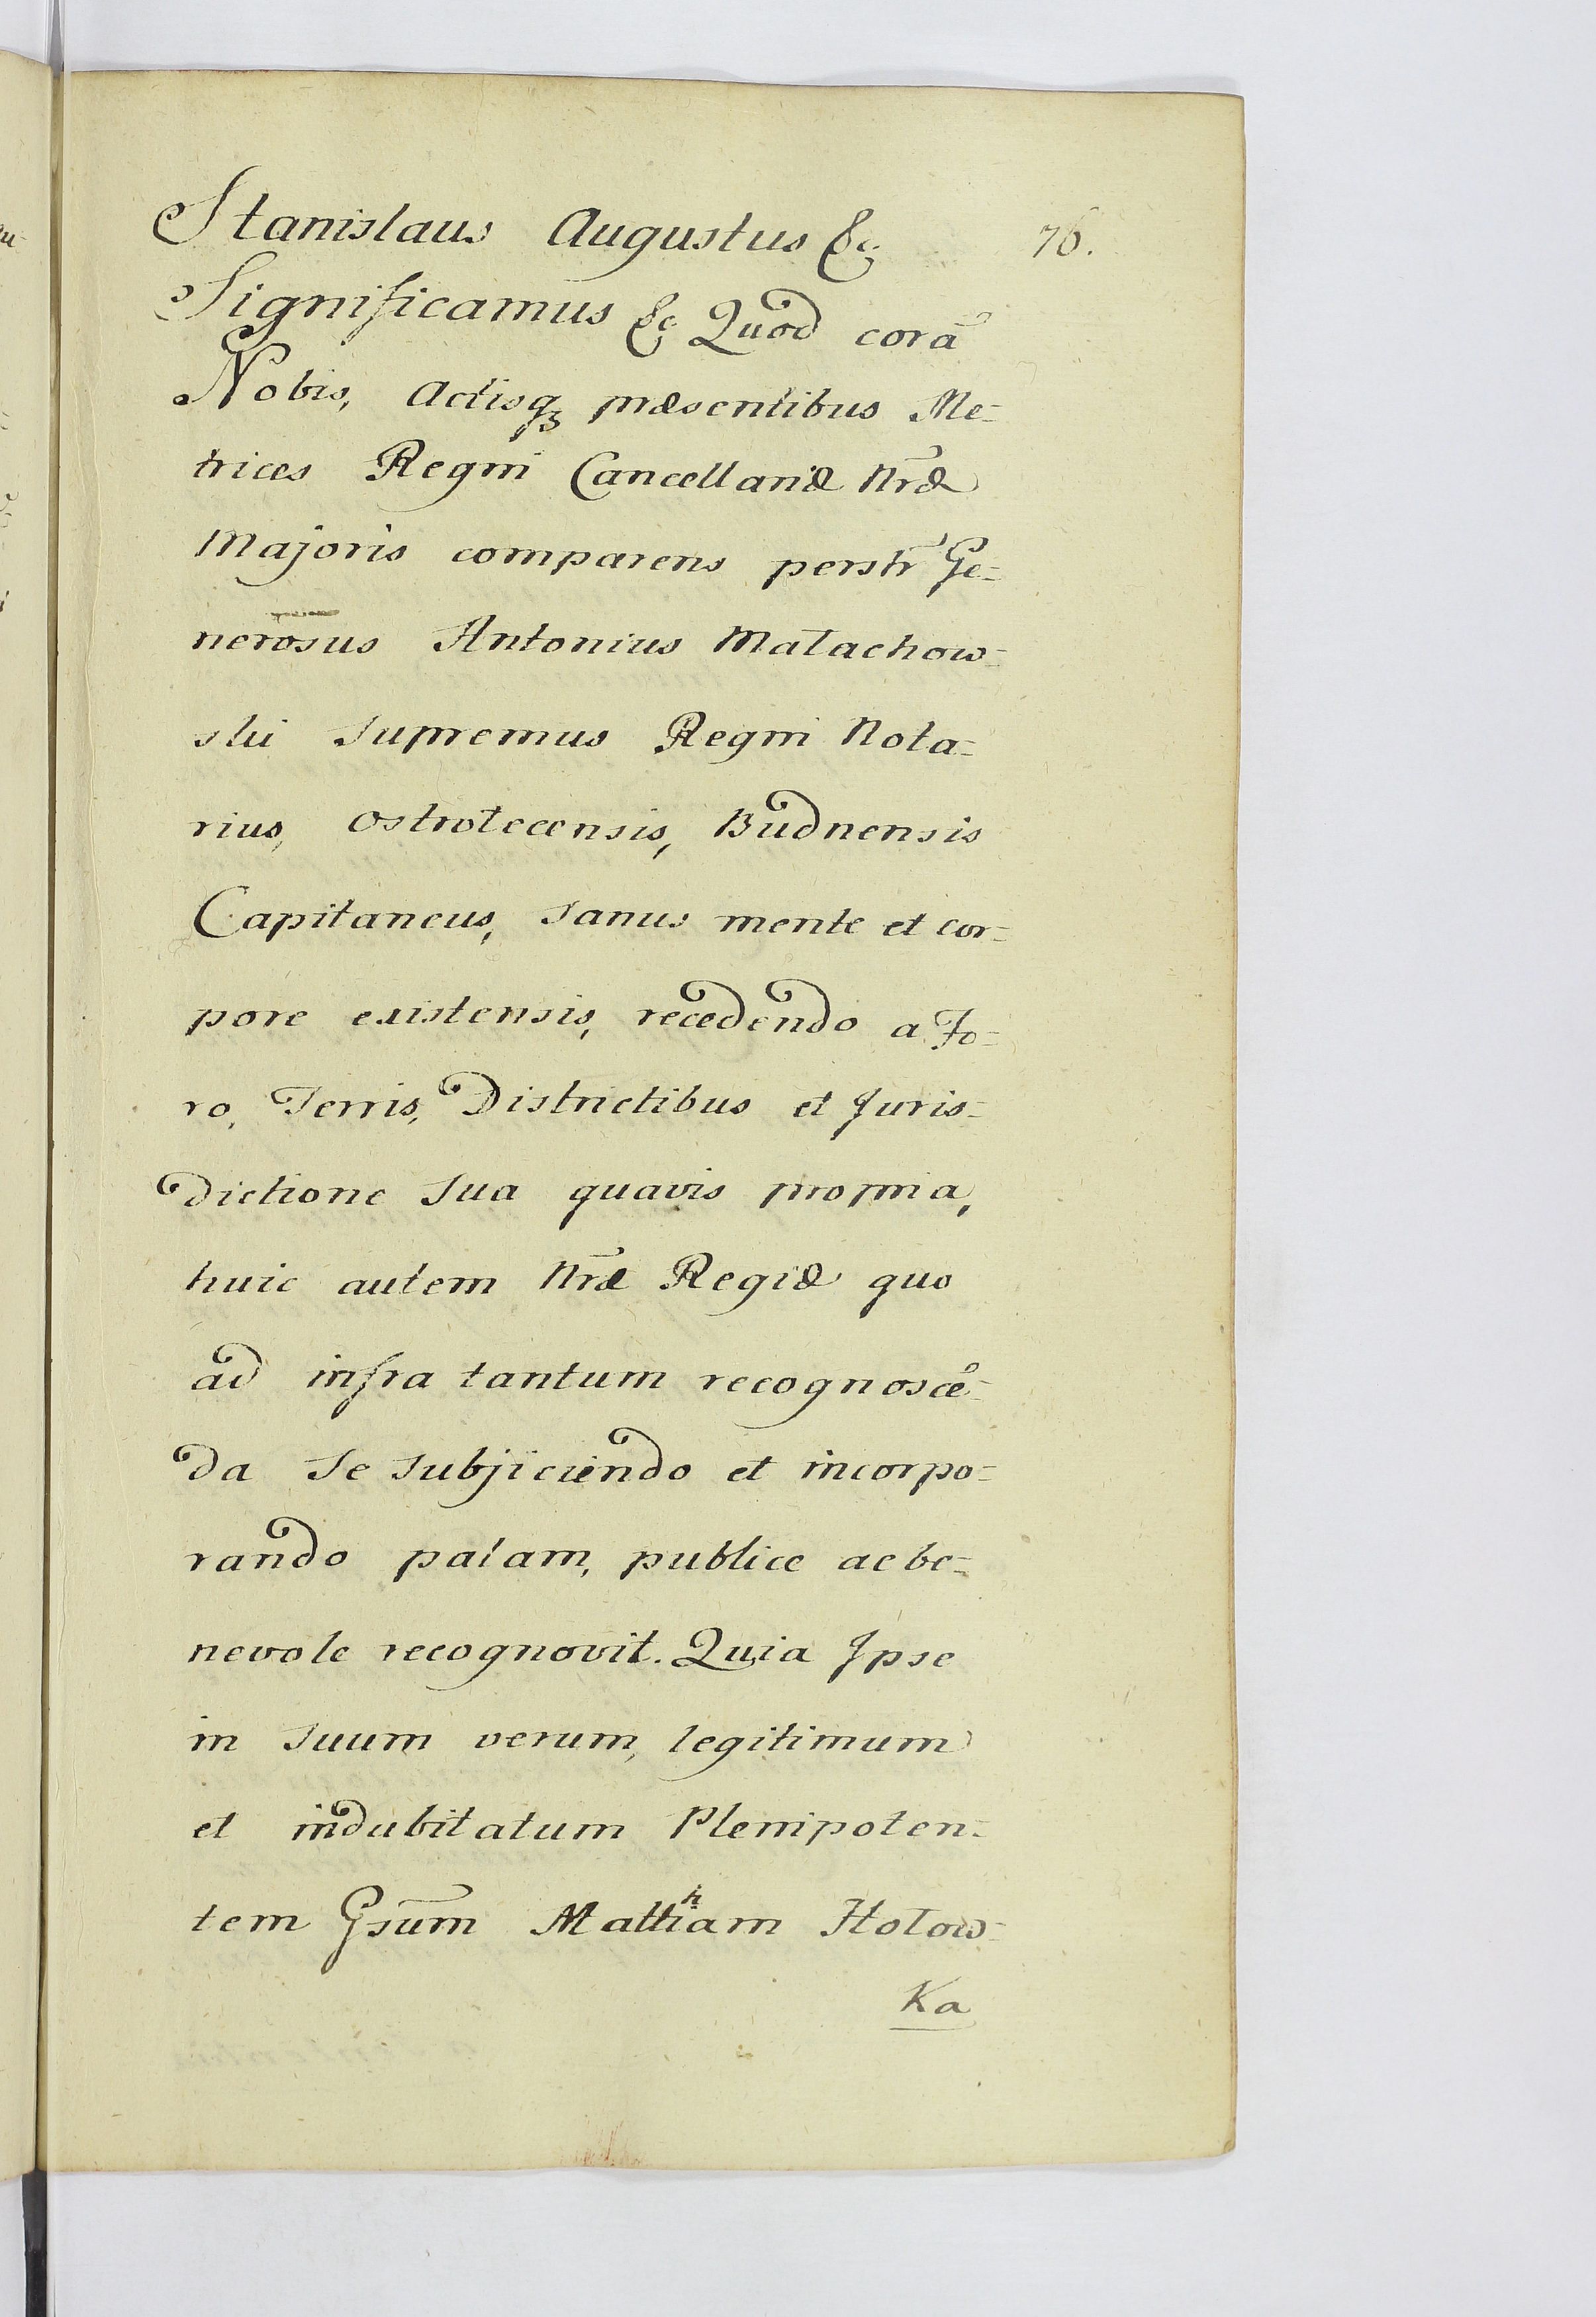 Stanislaus Augustus &c 76.
Significamus &c Quod corā
Nobis, Actisqꝫ præsentibus Me=
trices Regni Cancellariæ Nr̄æ
Majoris comparens perstr̄ Ge=
nerosus Antonius Małachow=
ski Supremus Regni Nota=
rius, Ostrołecensis, Budnensis
Capitaneus, sanus mente et cor=
pore existensis, recedendo a Fo=
ro, Terris, Districtibus et Juris=
dictione sua quavis propria,
huic autem Nr̄æ Regiæ quo
ad infra tantum recognoscē=
da se subjiciendo et incorpo=
rando palam, publice ac be=
nevole recognovit. Quia Ipse
in suum verum, legitimum
et indubitatum Plenipoten=
tem Gsūm Matthiam Hołow=
Ka